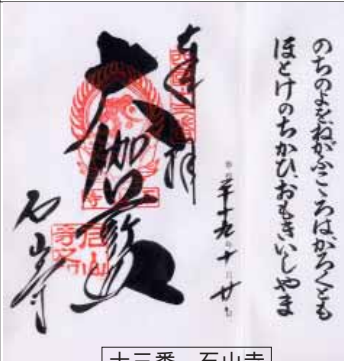 のちのよをねがふこころはかろくとも
ほとけのちかひおもきいしやま
奉拝
平成二十九年十月廿日
大伽藍
石山寺
十三番　石山寺